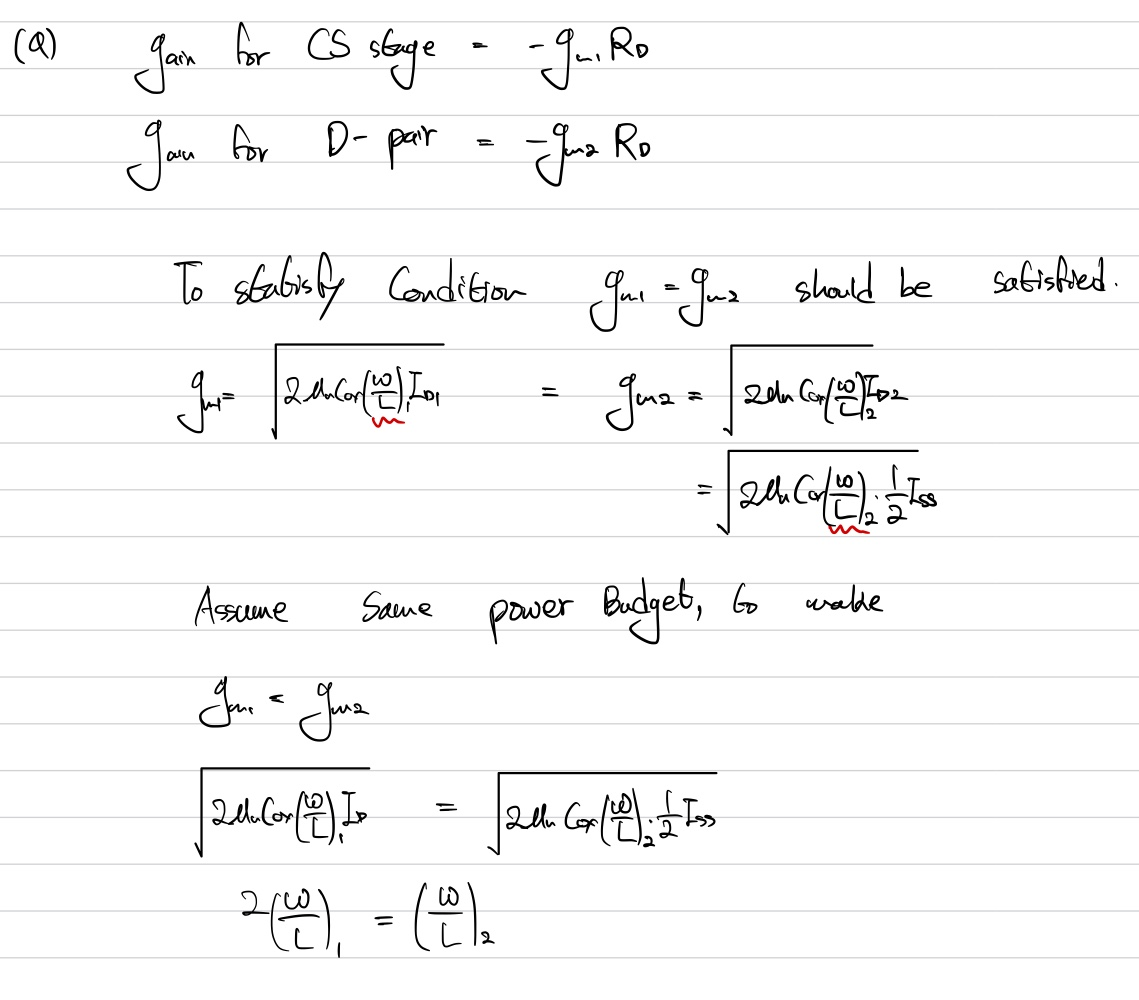 (Q) gain for CS stage = -gm1 RD
gain for D-pair = -gm2 RD
To statisfy Condition gm1 = gm2 should be satisfied.
gm1 = √(2μnCox(W/L)1 ID1) = gm2 = √(2μnCox(W/L)2 ID2)
= √(2μnCox(W/L)2 · 1/2 ISS)
Assume Same power Budget, to make
gm1 = gm2
√(2μnCox(W/L)1 ID) = √(2μnCox(W/L)2 · 1/2 ISS)
2(W/L)1 = (W/L)2